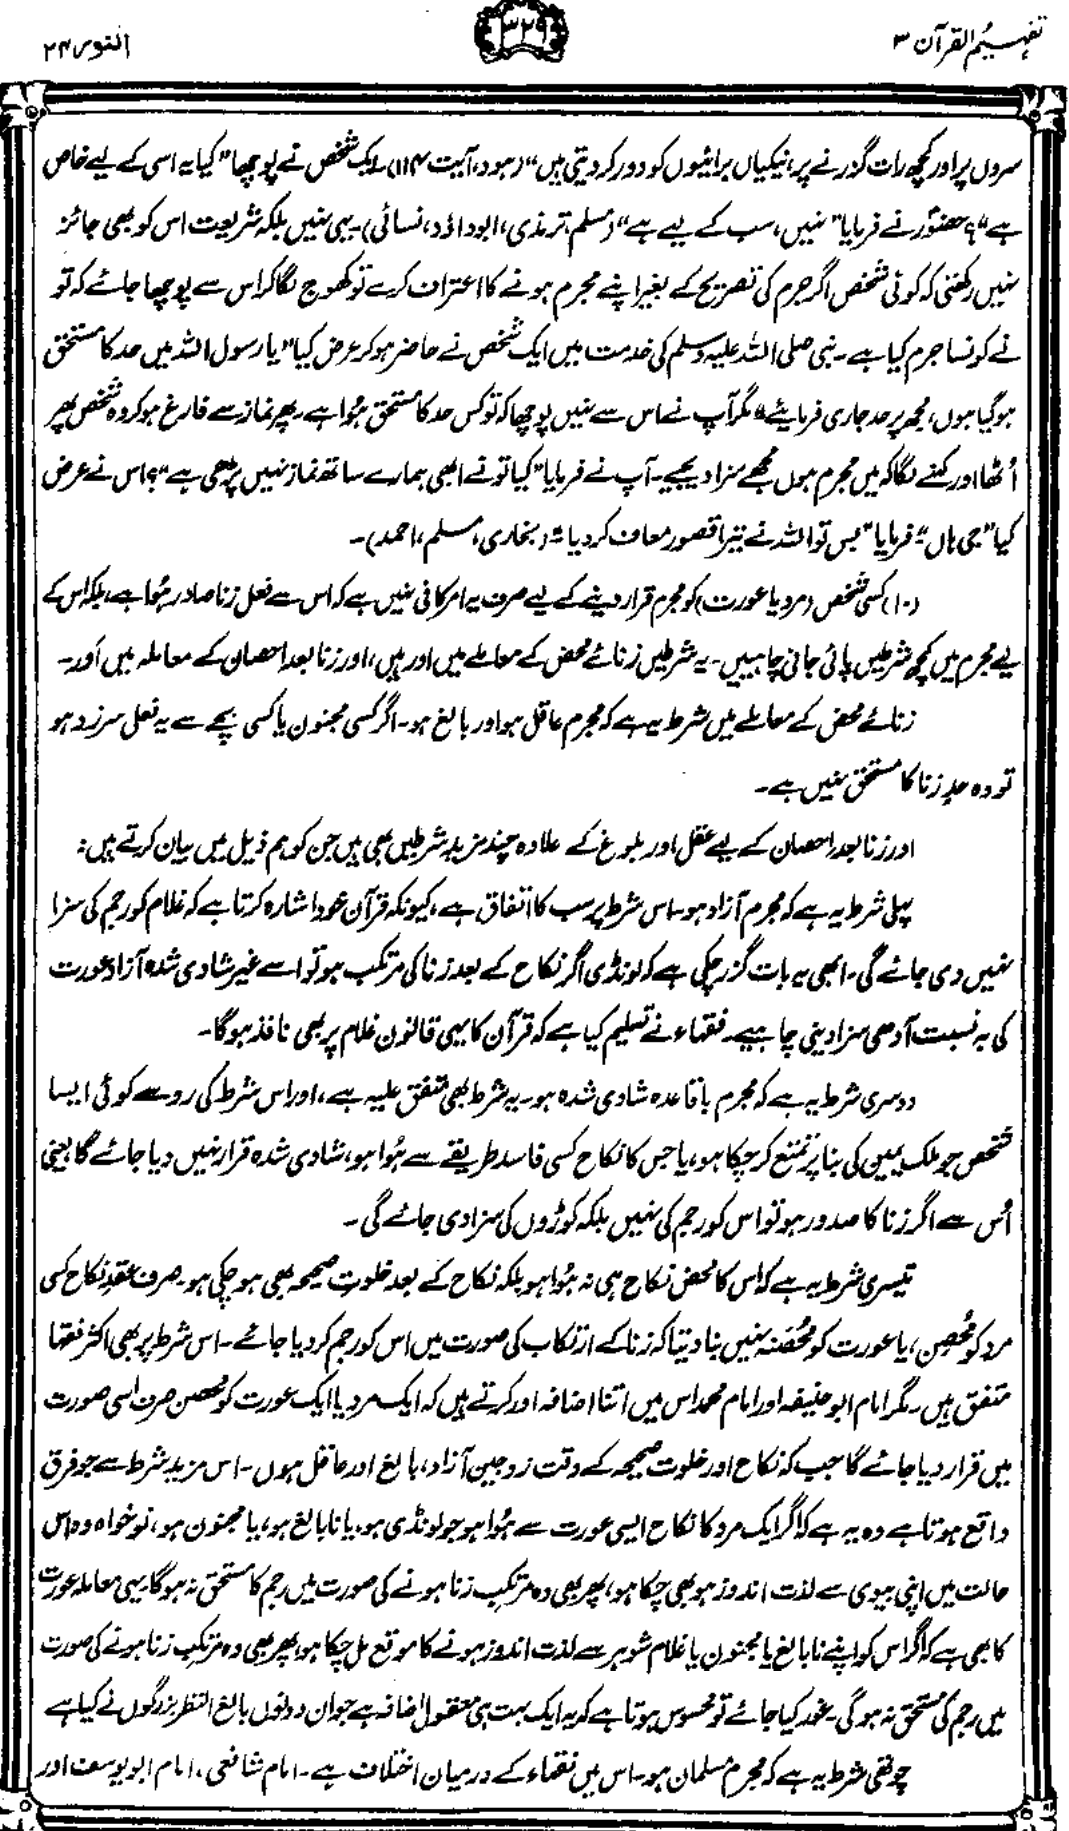 تفہیم القرآن ۳
۳۲۹
النور ۲۴
سروں پر اور کچھ رات گزرنے پر، نیکیاں برائیوں کو دور کر دیتی ہیں" (ہود، آیت ۱۱۴)۔ ایک شخص نے پوچھا "کیا یہ اسی کے لیے خاص
ہے"؟ حضورؐ نے فرمایا "نہیں، سب کے لیے ہے" (مسلم، ترمذی، ابوداؤد، نسائی)۔ یہی نہیں بلکہ شریعت اس کو بھی جائز
نہیں رکھتی کہ کوئی شخص اگر جرم کی تصریح کے بغیر اپنے مجرم ہونے کا اعتراف کرے تو کھوج لگا کر اس سے پوچھا جائے کہ تو
نے کونسا جرم کیا ہے۔ نبی صلی اللہ علیہ وسلم کی خدمت میں ایک شخص نے حاضر ہو کر عرض کیا "یا رسول اللہ میں حد کا مستحق
ہو گیا ہوں، مجھ پر حد جاری فرمائیے" مگر آپ نے اس سے نہیں پوچھا کہ تو کس حد کا مستحق ہُوا ہے۔ پھر نماز سے فارغ ہو کر وہ شخص پھر
اُٹھا اور کہنے لگا کہ میں مجرم ہوں مجھے سزا دیجیے۔ آپ نے فرمایا "کیا تو نے ابھی ہمارے ساتھ نماز نہیں پڑھی ہے"؟ اس نے عرض
کیا "جی ہاں" فرمایا "بس تو اللہ نے تیرا قصور معاف کر دیا" (بخاری، مسلم، احمد)۔
(۱۰) کسی شخص (مرد یا عورت) کو مجرم قرار دینے کے لیے صرف یہ امر کافی نہیں ہے کہ اس سے فعل زنا صادر ہُوا ہے، بلکہ اس کے
لیے مجرم میں کچھ شرطیں پائی جانی چاہییں۔ یہ شرطیں زنائے محض کے معاملے میں اور ہیں، اور زنا بعد احصان کے معاملہ میں اَور۔
زنائے محض کے معاملے میں شرط یہ ہے کہ مجرم عاقل ہو اور بالغ ہو۔ اگر کسی مجنون یا کسی بچے سے یہ فعل سرزد ہو
تو وہ حدِ زنا کا مستحق نہیں ہے۔
اور زنا بعد احصان کے لیے عقل اور بلوغ کے علاوہ چند مزید شرطیں بھی ہیں جن کو ہم ذیل میں بیان کرتے ہیں:
پہلی شرط یہ ہے کہ مجرم آزاد ہو۔ اس شرط پر سب کا اتفاق ہے، کیونکہ قرآن خود اشارہ کرتا ہے کہ غلام کو رجم کی سزا
نہیں دی جائے گی۔ ابھی یہ بات گزر چکی ہے کہ لونڈی اگر نکاح کے بعد زنا کی مرتکب ہو تو اسے غیر شادی شدہ آزاد عورت
کی بہ نسبت آدھی سزا دینی چاہیے۔ فقہاء نے تسلیم کیا ہے کہ قرآن کا یہی قانون غلام پر بھی نافذ ہوگا۔
دوسری شرط یہ ہے کہ مجرم باقاعدہ شادی شدہ ہو۔ یہ شرط بھی متفق علیہ ہے، اور اس شرط کی رو سے کوئی ایسا
شخص جو ملک یمین کی بنا پر تمتع کر چکا ہو، یا جس کا نکاح کسی فاسد طریقے سے ہُوا ہو، شادی شدہ قرار نہیں دیا جائے گا یعنی
اُس سے اگر زنا کا صدور ہو تو اس کو رجم کی نہیں بلکہ کوڑوں کی سزا دی جائے گی۔
تیسری شرط یہ ہے کہ اس کا محض نکاح ہی نہ ہُوا ہو بلکہ نکاح کے بعد خلوتِ صحیحہ بھی ہو چکی ہو۔ صرف عقدِ نکاح کسی
مرد کو مُحصِن، یا عورت کو مُحصَنہ نہیں بنا دیتا کہ زنا کے ارتکاب کی صورت میں اس کو رجم کر دیا جائے۔ اس شرط پر بھی اکثر فقہا
متفق ہیں۔ مگر امام ابو حنیفہ اور امام محمد اس میں اتنا اضافہ اور کرتے ہیں کہ ایک مرد یا ایک عورت کو محصن صرف اسی صورت
میں قرار دیا جائے گا جب کہ نکاح اور خلوت صحیحہ کے وقت زوجین آزاد، بالغ اور عاقل ہوں۔ اس مزید شرط سے جو فرق
واقع ہوتا ہے وہ یہ ہے کہ اگر ایک مرد کا نکاح ایسی عورت سے ہُوا ہو جو لونڈی ہو، یا نابالغ ہو، یا مجنون ہو، تو خواہ وہ اس
حالت میں اپنی بیوی سے لذت اندوز ہو بھی چکا ہو، پھر بھی وہ مرتکب زنا ہونے کی صورت میں رجم کا مستحق نہ ہوگا۔ یہی معاملہ عورت
کا بھی ہے کہ اگر اس کو اپنے نابالغ یا مجنون یا غلام شوہر سے لذت اندوز ہونے کا موقع مل چکا ہو، پھر بھی وہ مرتکب زنا ہونے کی صورت
میں رجم کی مستحق نہ ہوگی۔ غور کیا جائے تو محسوس ہوتا ہے کہ یہ ایک بہت ہی معقول اضافہ ہے جو ان دونوں بالغ النظر بزرگوں نے کیا ہے
چوتھی شرط یہ ہے کہ مجرم مسلمان ہو۔ اس میں فقہاء کے درمیان اختلاف ہے۔ امام شافعی، امام ابو یوسف اور